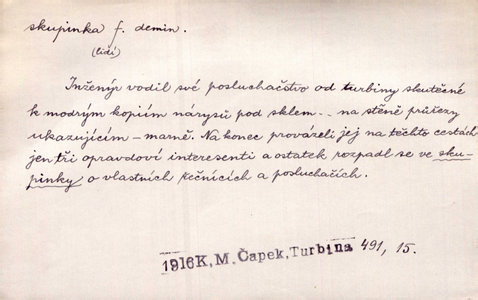 skupinka f. demin.
(lidí)
Inženýr vodil své posluchačstvo od turbiny skutečné
k modrým kopiím nárysů pod sklem .. na stěně průřezy
ukazujícím – marně. Na konec provázeli jej na těchto cestách
jen tři opravdoví interesenti a ostatek rozpadl se ve sku-
pinky o vlastních řečnících a posluchačích.
1916K,M.Čapek,Turbina 491, 15.